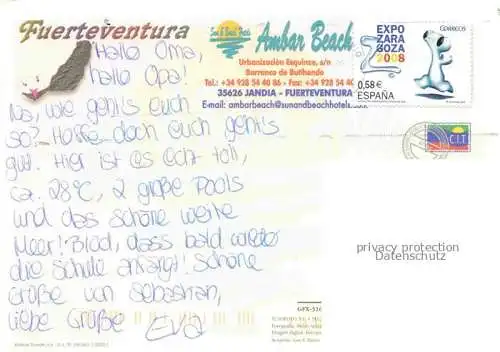 Fuerteventura
Sun & Beach Hotels
Ambar Beach
Urbanización Esquinzo, s/n
Barranco de Butihondo
Tel.: +34 928 54 40 86 · Fax: +34 928 54 40
35626 JANDIA - FUERTEVENTURA
E-mail: ambarbeach@sunandbeachhotels.
EXPO
ZARA
GOZA
2008
CORREOS
0,58 €
ESPAÑA
C.I.T.
Hallo Oma,
hallo Opa!
Na, wie geht's euch
so? Hoffe doch euch geht's
gut. Hier ist es echt toll,
ca. 28°C, 2 große Pools
und das schöne weite
Meer! Blöd, dass bald wieder
die Schule anfängt! Schöne
Grüße von Sebastian,
liebe Grüße Eva
privacy protection
Datenschutz